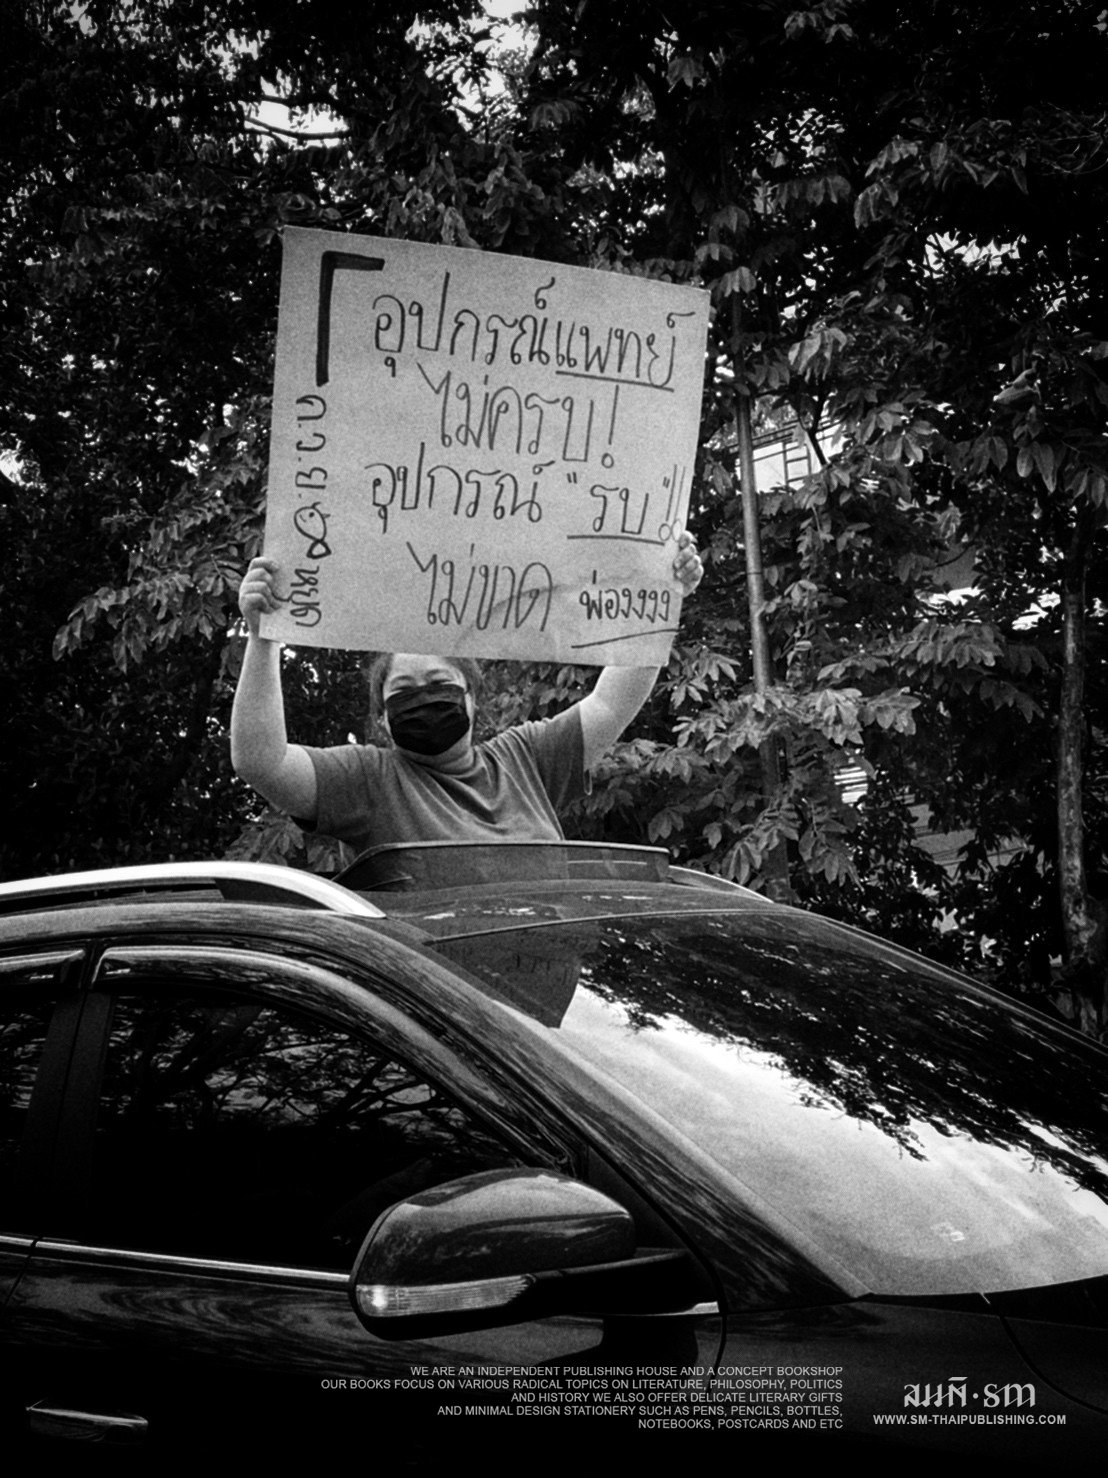 อุปกรณ์แพทย์
ไม่ครบ!
อุปกรณ์ "รบ"!!
ไม่ขาด พ่องงงง
WE ARE AN INDEPENDENT PUBLISHING HOUSE AND A CONCEPT BOOKSHOP
OUR BOOKS FOCUS ON VARIOUS RADICAL TOPICS ON LITERATURE, PHILOSOPHY, POLITICS
AND HISTORY WE ALSO OFFER DELICATE LITERARY GIFTS
AND MINIMAL DESIGN STATIONERY SUCH AS PENS, PENCILS, BOTTLES,
NOTEBOOKS, POSTCARDS AND ETC
สมมติ · SM
WWW.SM-THAIPUBLISHING.COM